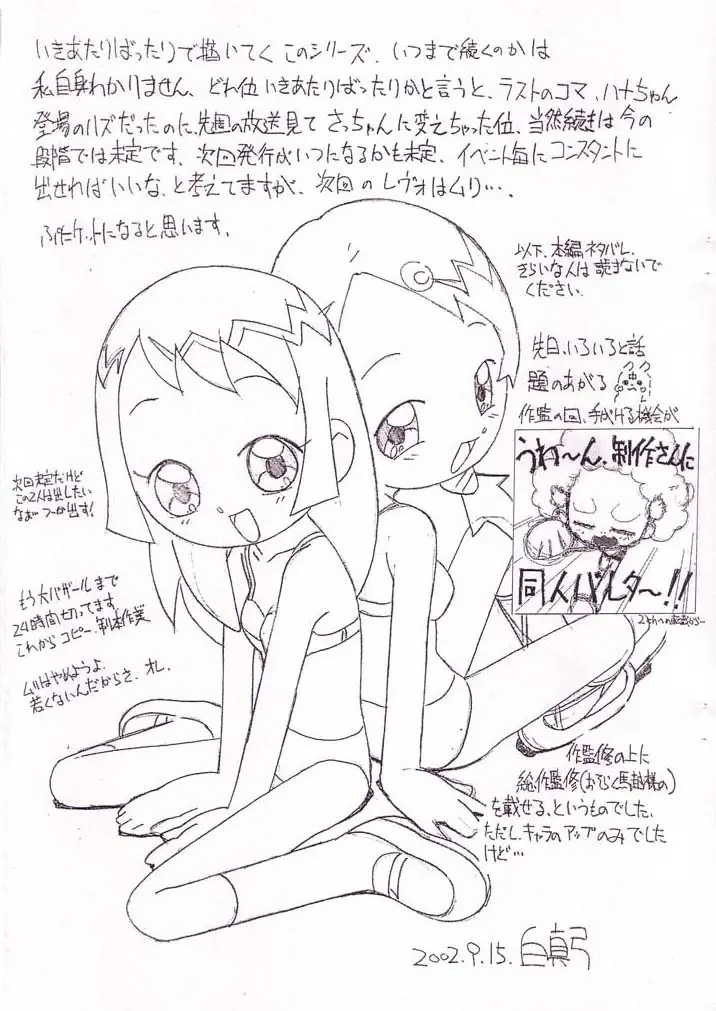 いきあたりばったりで描いてく このシリーズ、いつまで続くのかは
私自身わかりません、どれ位いきあたりばったりかと言うと、ラストのコマ、ハナちゃん
登場のハズだったのに、先週の放送見て さっちゃんに変えちゃった位、当然続きは今の
段階では未定です、次回発行がいつになるかも未定、イベント毎にコンスタントに
出せればいいな、と考えてますが、次回の レヴォはムリ…、
ぷにケットになると思います。
以下、本編ネタバレ、
きらいな人は読まないで
ください。
先日、いろいろと話
題のあがる
作監の回、手がける機会が
うわ〜ん、制作さんに
同人バレタ〜!!
次回未定だけど
この2人は出したい
なぁ つーか出す!
もう大バザールまで
24時間切ってます。
これからコピー、製本作業
ムリはやめようよ、
若くないんだからさ、オレ、
作監修の上に
総作監修(おそらく馬越様の)
を載せる、というものでした、
ただし、キャラのアップのみでした
けど…
2002.9.15.白真弓